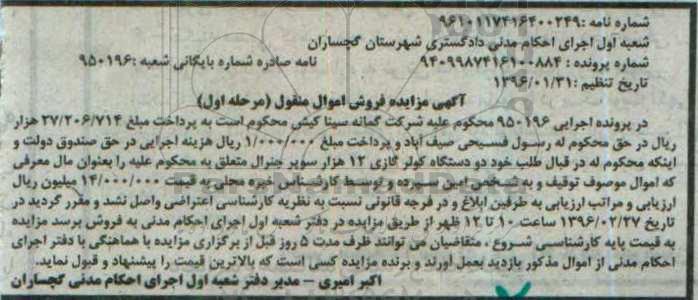 شماره نامه :۹۶۱۰۱۱۷۴۱۶۴۰۰۲۴۹
شعبه اول اجرای احکام مدنی دادگستری شهرستان گچساران
شماره پرونده : ۹۴۰۹۹۸۷۴۱۶۱۰۰۸۸۴ نامه صادره شماره بایگانی شعبه :۹۵۰۱۹۶
تاریخ تنظیم :۱۳۹۶/۰۱/۳۱
آگهی مزایده فروش اموال منقول (مرحله اول)
در پرونده اجرایی ۹۵۰۱۹۶ محکوم علیه شرکت گمانه سینا کیش محکوم است به پرداخت مبلغ ۲۷/۲۰۶/۷۱۴ هزار
ریال در حق محکوم له رسول فسیحی صیف آباد و پرداخت مبلغ ۱/۰۰۰/۰۰۰ ریال هزینه اجرایی در حق صندوق دولت و
اینکه محکوم له در قبال طلب خود دو دستگاه کولر گازی ۱۲ هزار سوپر جنرال متعلق به محکوم علیه را بعنوان مال معرفی
که اموال موصوف توقیف و به شخص امین سپرده و توسط کارشناس خبره محلی به قیمت ۱۴/۰۰۰/۰۰۰ میلیون ریال
ارزیابی و مراتب ارزیابی به طرفین ابلاغ و در فرجه قانونی نسبت به نظریه کارشناسی اعتراضی واصل نشد و مقرر گردید در
تاریخ ۱۳۹۶/۰۲/۲۷ ساعت ۱۰ تا ۱۲ ظهر از طریق مزایده در دفتر شعبه اول اجرای احکام مدنی به فروش برسد مزایده
به قیمت پایه کارشناسی شروع ، متقاضیان می توانند ظرف مدت ۵ روز قبل از برگزاری مزایده با هماهنگی با دفتر اجرای
احکام مدنی از اموال مذکور بازدید بعمل آورند و برنده مزایده کسی است که بالاترین قیمت را پیشنهاد و قبول نماید.
اکبر امیری – مدیر دفتر شعبه اول اجرای احکام مدنی گچساران